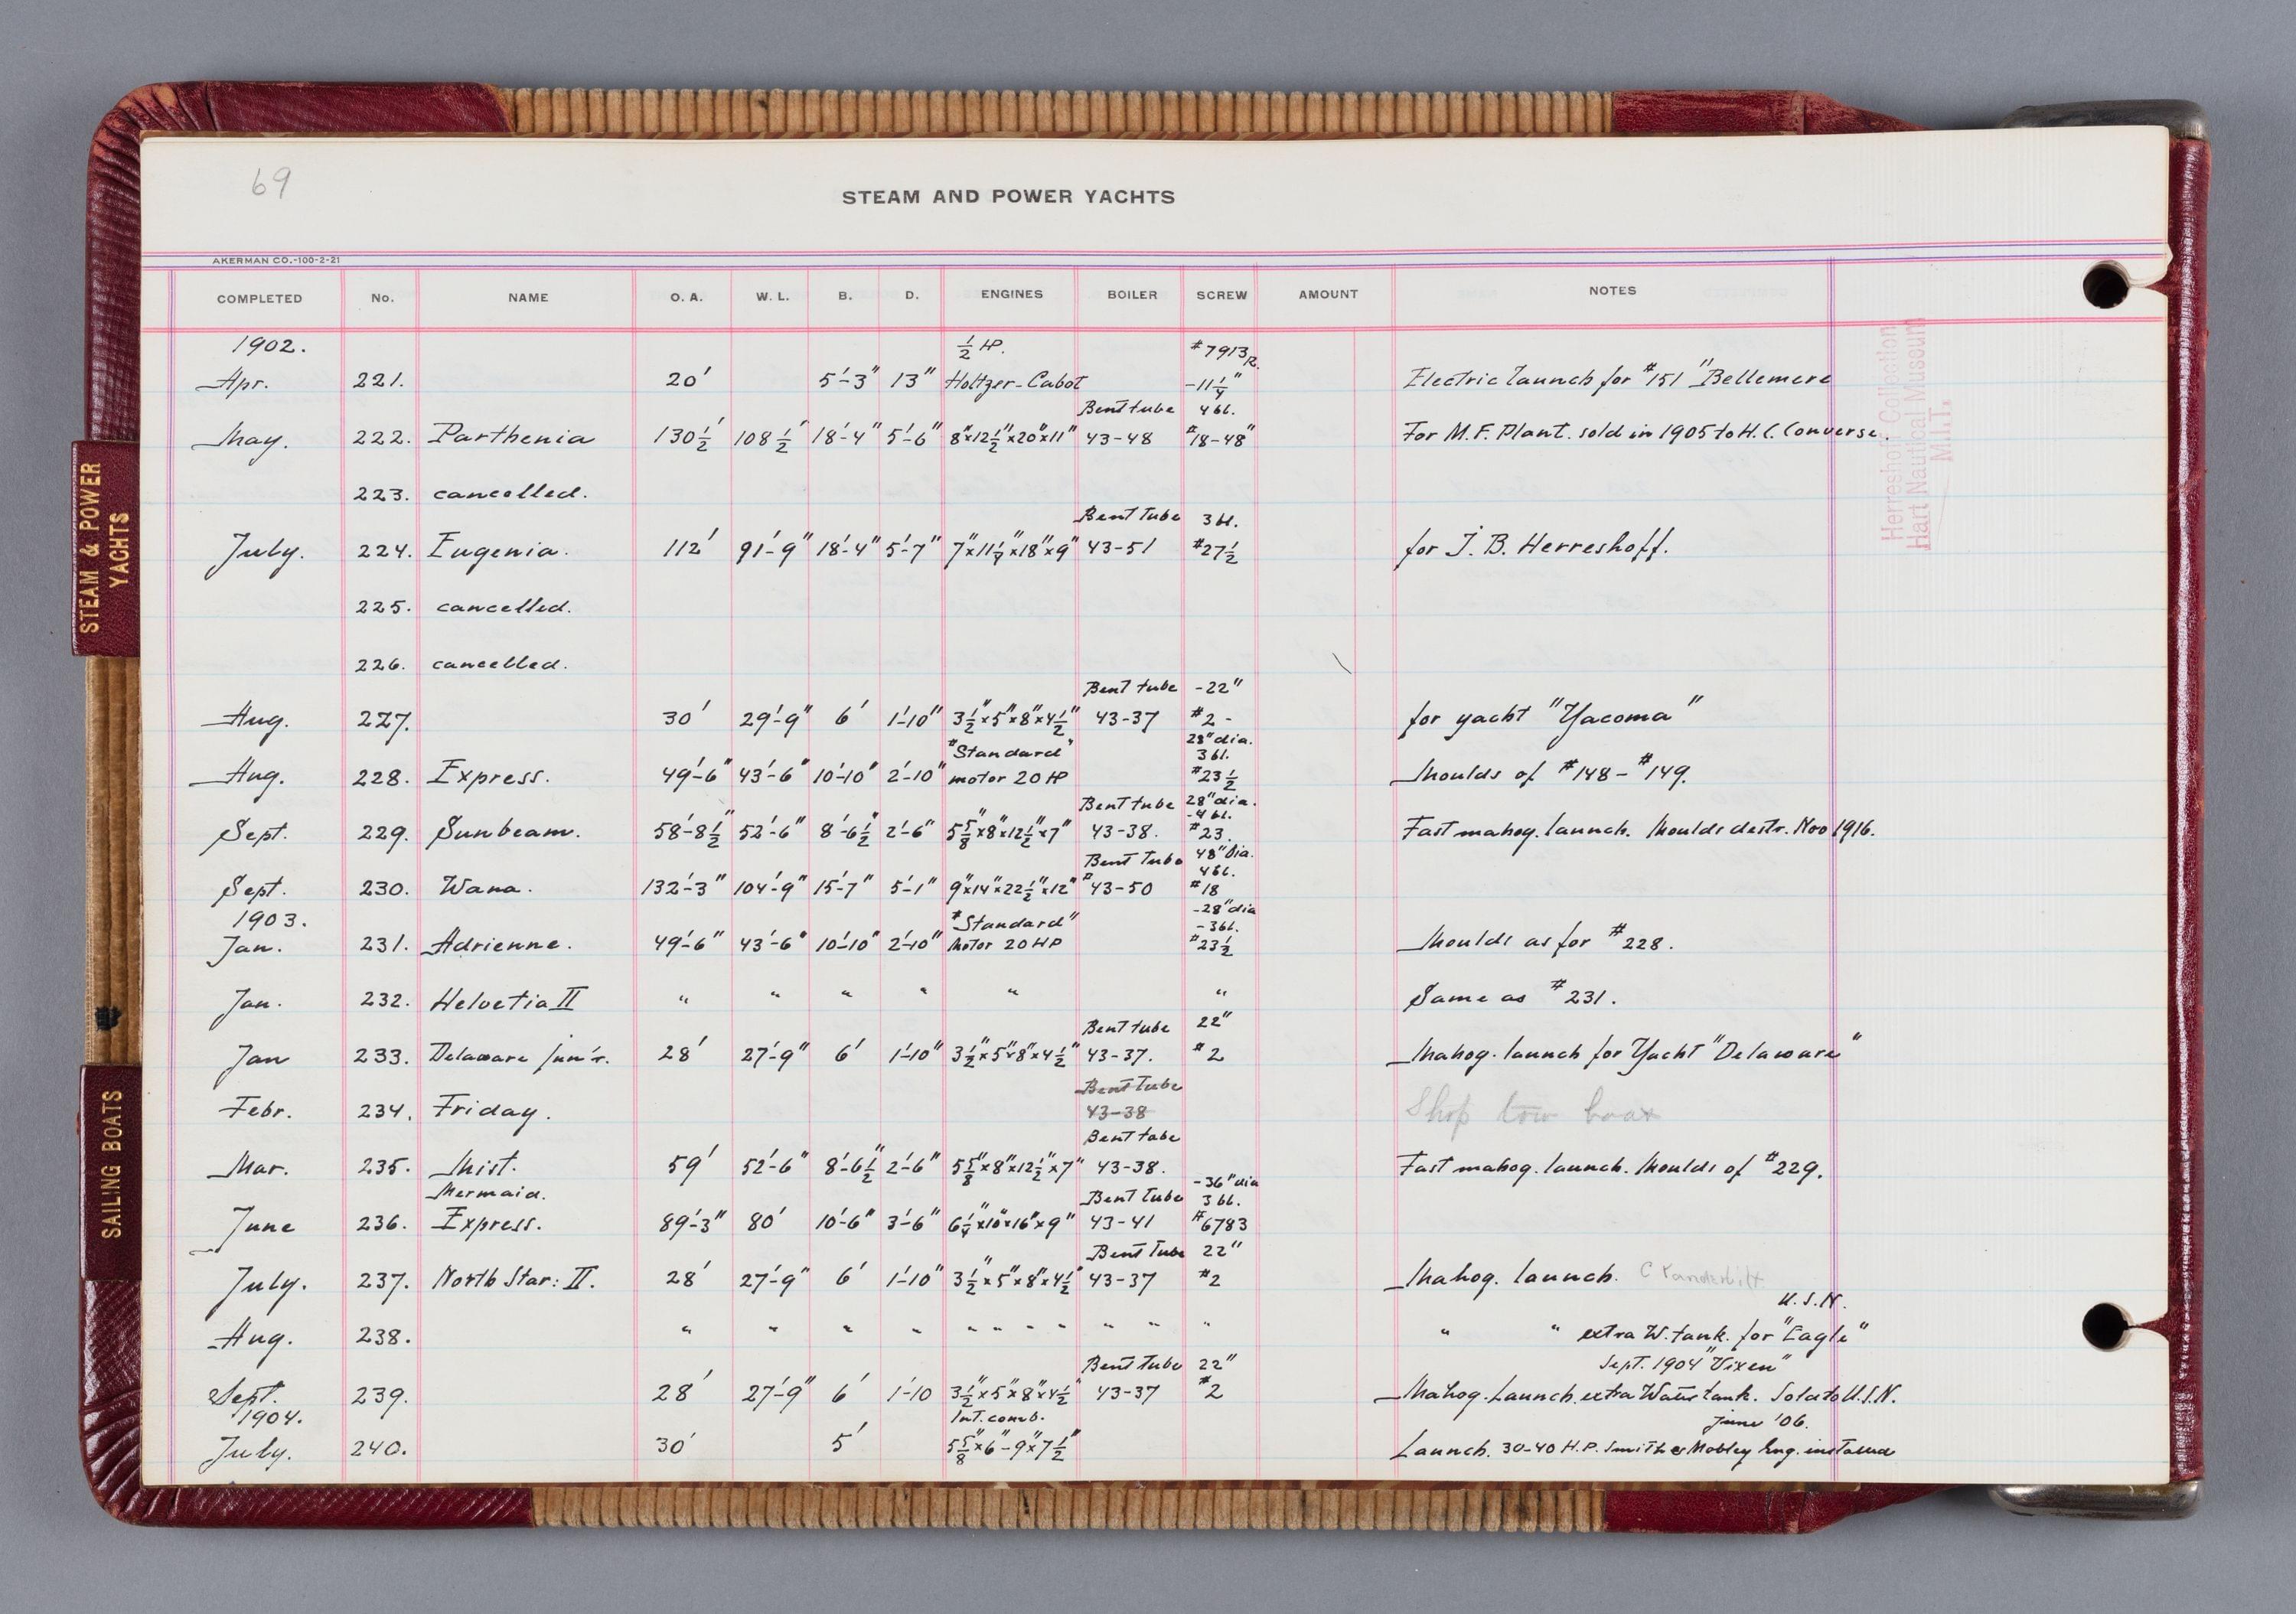 69
STEAM AND POWER YACHTS
AKERMAN CO.-100-2-21
COMPLETED No. NAME O. A. W. L. B. D. ENGINES BOILER SCREW AMOUNT NOTES
1902. ½ HP. #7913R.
Apr. 221. 20' 5'-3" 13" Holtzer-Cabot -11¼" Electric launch for #151 "Bellemere
Bent tube 4 bl.
May. 222. Parthenia 130½' 108½' 18'-4" 5'-6" 8"x12½"x20"x11" 43-48 #18-48" For M.F. Plant. sold in 1905 to H.C. Converse.
223. cancelled.
Bent tube 3 bl.
July. 224. Eugenia. 112' 91'-9" 18'-4" 5'-7" 7"x11¼"x18"x9" 43-51 #27½ for J. B. Herreshoff.
225. cancelled.
226. cancelled.
Bent tube -22"
Aug. 227. 30' 29'-9" 6' 1'-10" 3½"x5"x8"x4½" 43-37 #2 - for yacht "Yacoma"
"Standard" 28" dia. 3 bl.
Aug. 228. Express. 49'-6" 43'-6" 10'-10" 2'-10" motor 20 HP #23½ Moulds of #148-#149.
Bent tube 28" dia. -4 bl.
Sept. 229. Sunbeam. 58'-8½" 52'-6" 8'-6½" 2'-6" 5⅝"x8"x12½"x7" 43-38. #23. Fast mahog. launch. Moulds destr. Nov 1916.
Bent tube 48" Dia. 4 bl.
Sept. 230. Wana. 132'-3" 104'-9" 15'-7" 5'-1" 9"x14"x22½"x12" #43-50 #18
1903. "Standard" -28" dia -3 bl.
Jan. 231. Adrienne. 49'-6" 43'-6" 10'-10" 2'-10" Motor 20 HP #23½ Moulds as for #228.
Jan. 232. Helvetia II " " " " " " Same as #231.
Bent tube 22"
Jan 233. Delaware jun'r. 28' 27'-9" 6' 1'-10" 3½"x5"x8"x4½" 43-37. #2 Mahog. launch for Yacht "Delaware"
Bent tube
Febr. 234. Friday. 43-38 Shop tow boat
Bent tube
Mar. 235. Mist. 59' 52'-6" 8'-6½" 2'-6" 5⅝"x8"x12½"x7" 43-38. Fast mahog. launch. Moulds of #229.
Mermaid. Bent tube -36" dia 3 bl.
June 236. Express. 89'-3" 80' 10'-6" 3'-6" 6¼"x10"x16"x9" 43-41 #6783
Bent tube 22"
July. 237. North Star: II. 28' 27'-9" 6' 1'-10" 3½"x5"x8"x4½" 43-37 #2 Mahog. launch. C Vanderbilt
U.S.N.
Aug. 238. " " " " " " " " " " " " " extra W. tank. for "Eagle"
Bent tube 22" Sept. 1904 "Vixen"
Sept. 239. 28' 27'-9" 6' 1'-10 3½"x5"x8"x4½" 43-37 #2 Mahog. Launch. extra Water tank. Sold to U.S.N.
1904. Int. comb. June '06.
July. 240. 30' 5' 5⅝"x6"-9"x7½" Launch. 30-40 H.P. Smith & Mabley Eng. installed
Herreshoff Collection
Hart Nautical Museum
M.I.T.
STEAM & POWER
YACHTS
SAILING BOATS